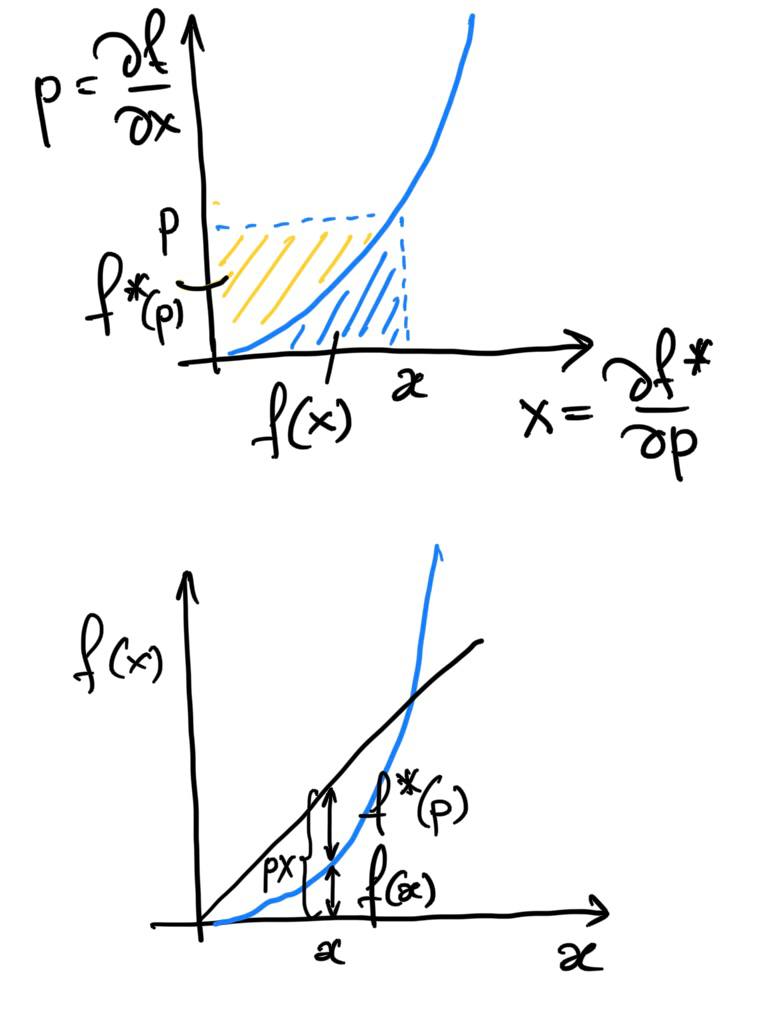 p = ∂f/∂x
p
f*(p)
f(x)
x
x = ∂f*/∂p
f(x)
f*(p)
px
f(x)
x
x